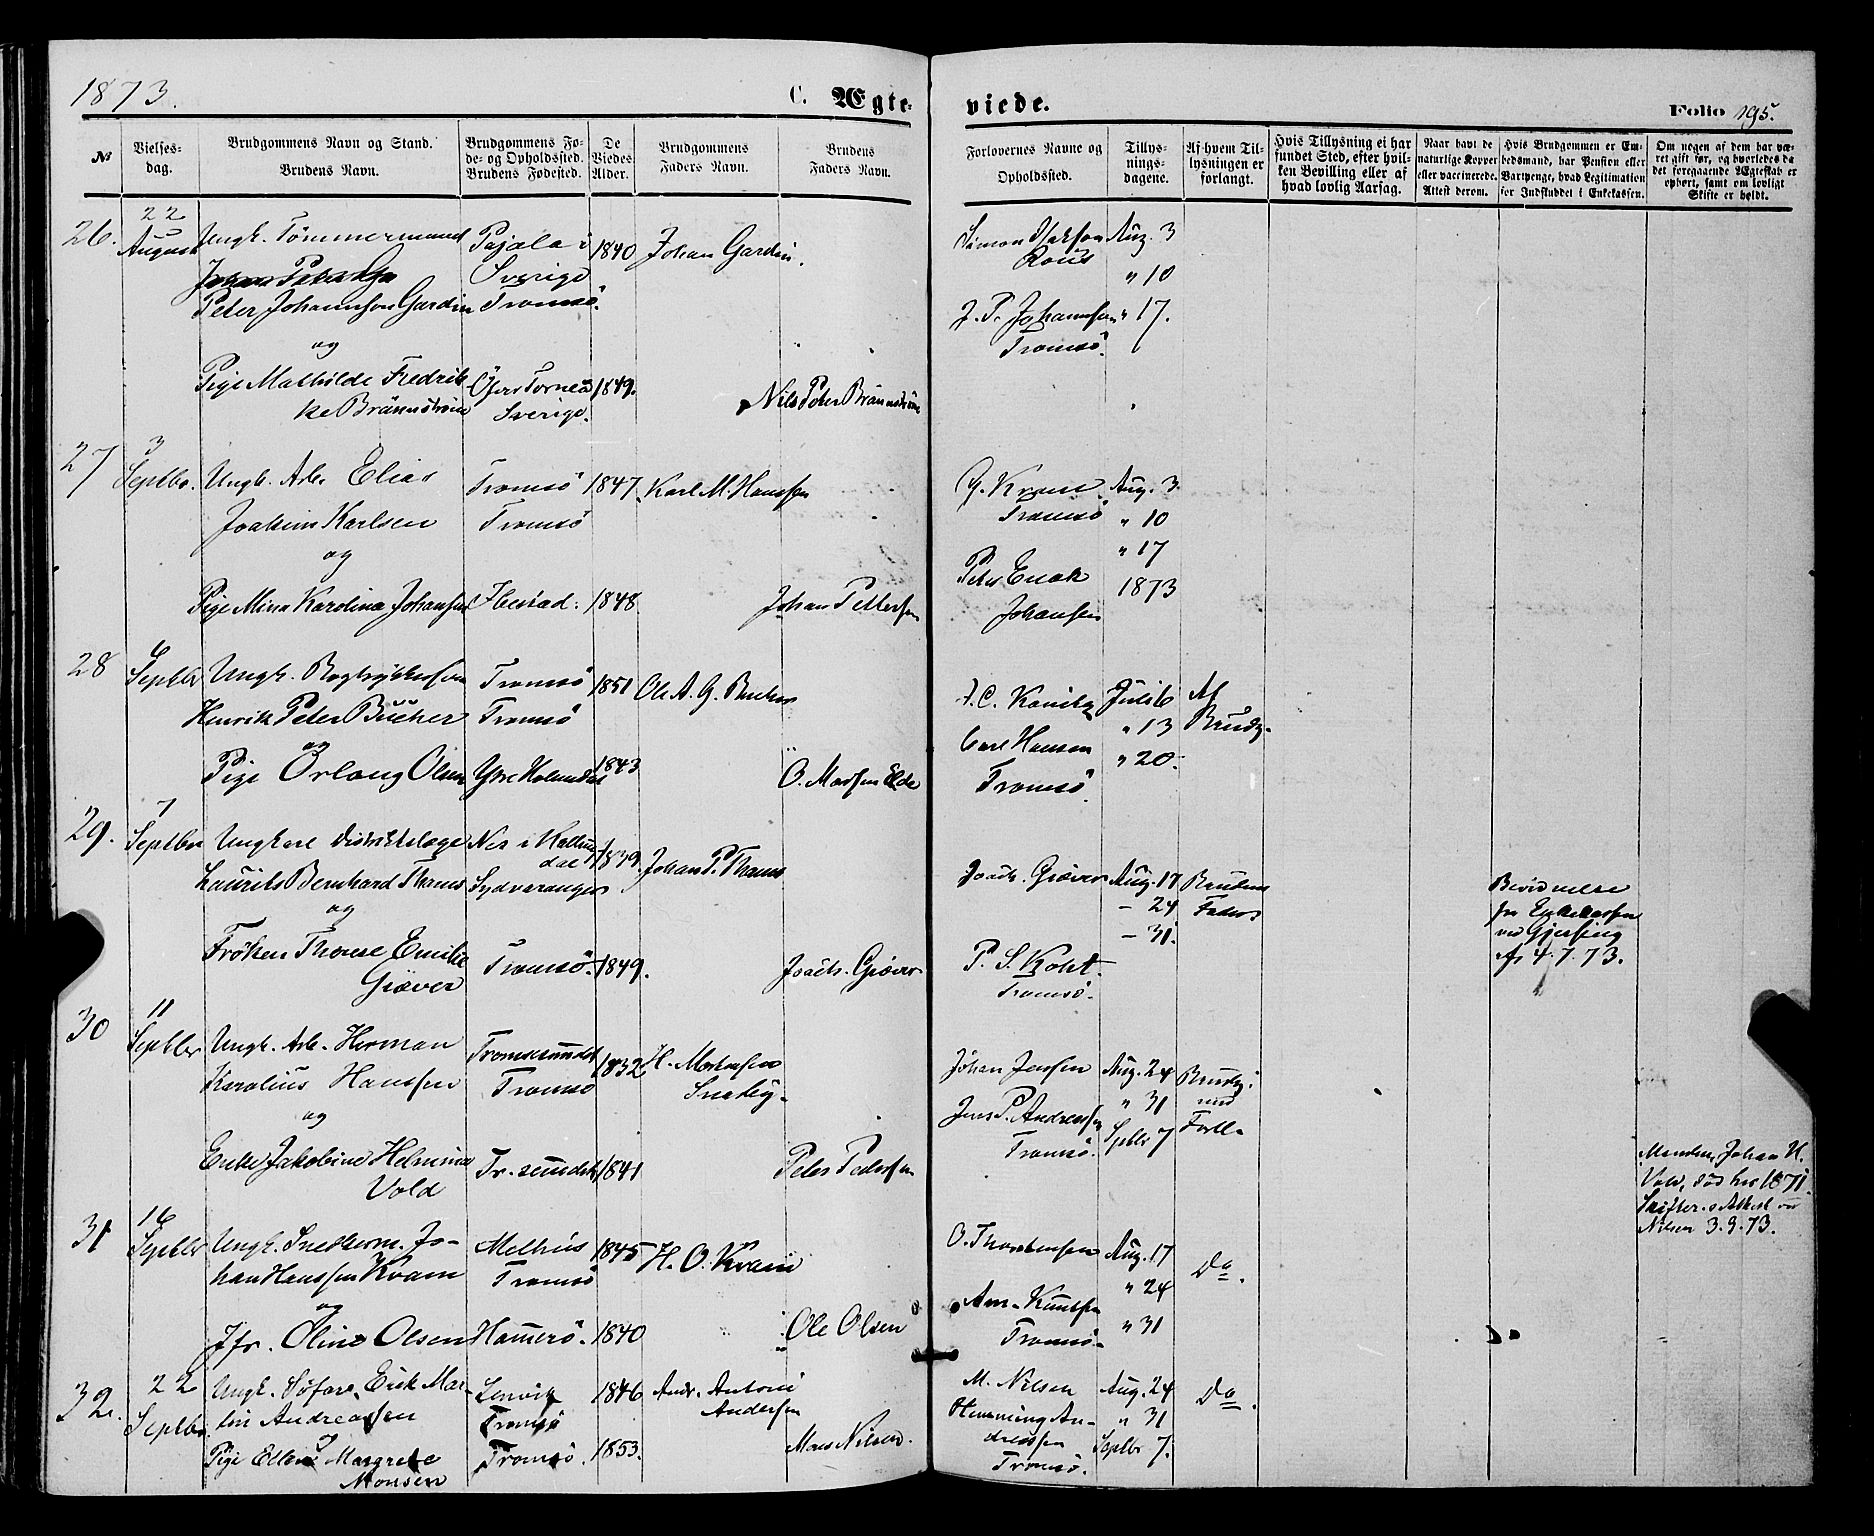 1873.
C. Ægte-
viede.
Folio 195.
№
Vielses-
dag.
Brudgommens Navn og Stand.
Brudens Navn.
Brudgommens Fø-
de- og Opholdssted.
Brudens Fødested.
De
Viedes
Alder.
Brudgommens
Faders Navn.
Brudens
Faders Navn.
Forlovernes Navne og
Opholdssted.
Tillys-
nings-
dagene.
Af hvem Til-
lysningen er
forlangt.
Hvis Tillysning ei har
fundet Sted, efter hvil-
ken Bevilling eller af
hvad lovlig Aarsag.
Naar havt de
naturlige Kopper
eller vaccinerede.
Attest derom.
Hvis Brudgommen er Em-
bedsmand, har Pension eller
Vartpenge, hvad Legitimation
for Indskuddet i Enkekassen.
Om nogen af dem har væ-
ret gift før, og hvorledes da
det foregaaende Ægteskab er
ophørt, samt om lovligt
Skifte er holdt.
26.
22
August
Ungk. Tömmermand
Peter Johannsen Gardin
og
Pige Mathilde Fredrik
ke Brännström
Pajala i
Sverige
Tromsö.
Öfver Torneå
Sverige.
1840
1849.
Johan Gardin.
Nils Peter Brännström
Simon Isaksen
J. P. Johannsen
Tromsö.
Aug. 3
" 10
" 17.
27
3
Septbr.
Ungk. Arb. Elias
Joakim Karlsen
og
Pige Mina Karolina Johansen
Tromsö
Tromsö
Ibestad.
1847.
1848
Karl M. Hanssen
Johan Pettersen
G. Kræmer
Tromsö
Peter Enok
Johansen
Aug. 3.
" 10
" 17
1873
28
6
Septbr
Ungk. Bogtrykkersven
Henrik Peter Bücher
og
Pige Orlaug Olsen
Tromsö
Tromsö
1851
1843
Ole A. G. Bücher
O. Madsen Elde
Carl Hansen
Tromsö
Juli 6
" 13
" 20.
Af
Brudg.
29.
7
Septbr
Ungkarl Distriktslæge
Laurits Bernhard Thams
og
Fröken Thomse Emilie
Giæver
Nes i Hallings
dal
Sydvaranger
Tromsö.
1839.
1849.
Johan P. Thams
Joach. Giæver
Joach. Giæver
P. S. Koht.
Tromsö.
Aug. 17
- 24
- 31.
Brudens
Fader
Bevidnelse
fra Enkekassen
ved Gjersing
af 4.7.73.
30
11
Septbr
Ungk. Arb. Herman
Karolius Hanssen
og
Enke Jakobine Helmine
Vold
Tromsesundet
Tromsö
Tr. sundet
1832
1841
H. Mortensen
Peter Pedersen
Johan Jensen
Jens P. Andreassen
Tromsö.
Aug. 24
" 31
Septbr 7
Brudg.
med
Forl.
Manden, Johan H.
Vold, död her 1871.
Skifter. s Attest ved
Nilsen 3.9.73.
31
16
Septbr
Ungk. Snedkerm. Jo-
han Hanssen Kvam
og
Jfr. Oline Olsen
Melhus
Tromsö
Hamerö.
1845
1840
H. O. Kvam
Ole Olsen
O. Thorstensen
Arn. Knutsen
Tromsö.
Aug. 17
" 24
" 31
Do.
32.
22
Septbr.
Ungk. Söfar. Erik Mar-
tin Andreassen
og
Pige Ellen Margrete
Monsen
Lenvik
Tromsö
Tromsö.
1846
1853.
Andr. Antoni
Andersen
Mons Nilsen.
M. Nilsen
Hemming An-
dreassen
Tromsö.
Aug. 24
" 31
Septbr 7.
Do.